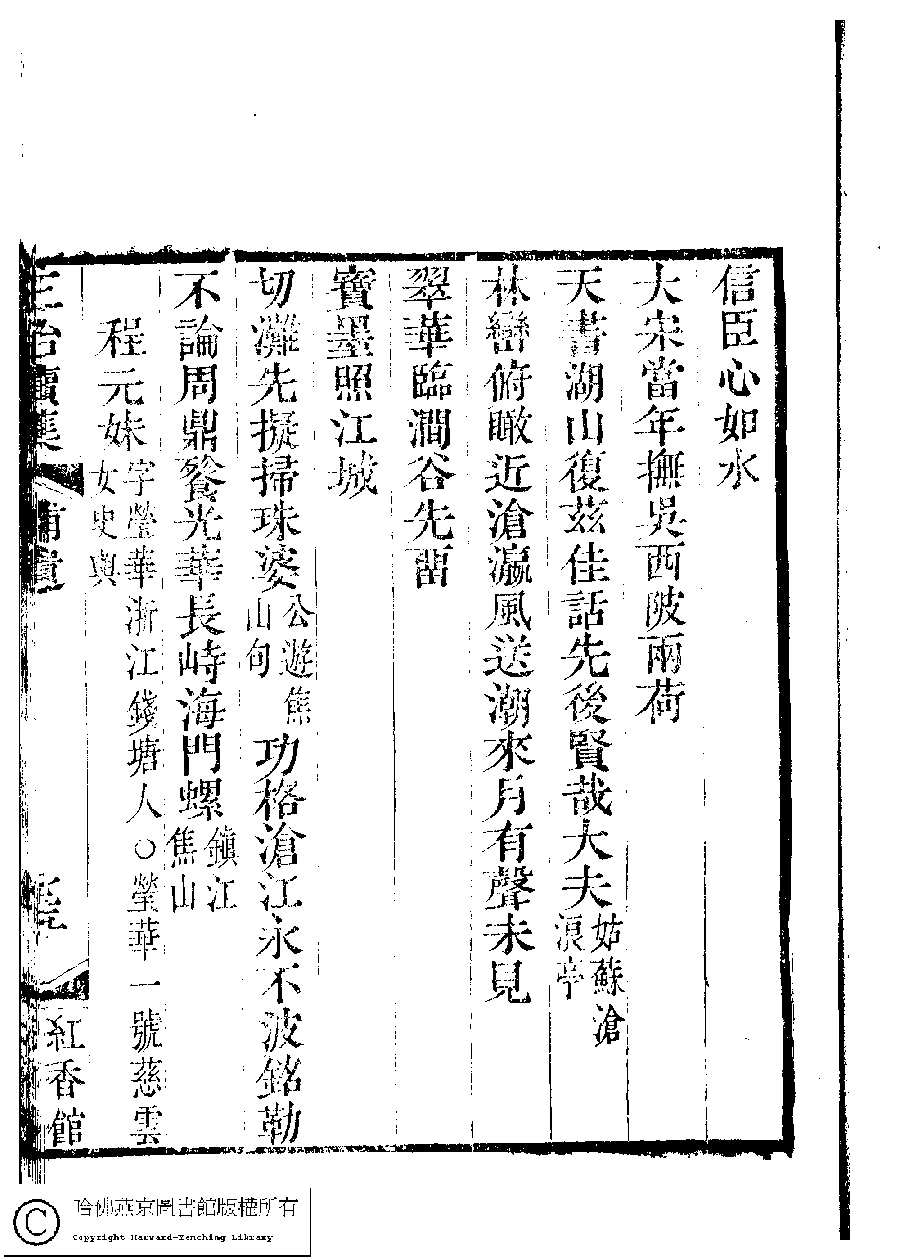 信臣心如水
大宋當年撫吳西陂兩荷
天書湖山復茲佳話先後賢哉大夫姑蘇滄浪亭
林巒俯瞰近滄瀛風送潮來月有聲未見
翠華臨澗谷先畱
寶墨照江城
切灘先擬掃珠婆公遊焦山句功格滄江永不波銘勒
不論周鼎餈光華長峙海門螺鎮江焦山
程元妹字瑩華浙江錢塘人○瑩華一號慈雲女史與
續集
補遺
紅香館
哈佛燕京圖書館版權所有
Copyright Harvard-Yenching Library